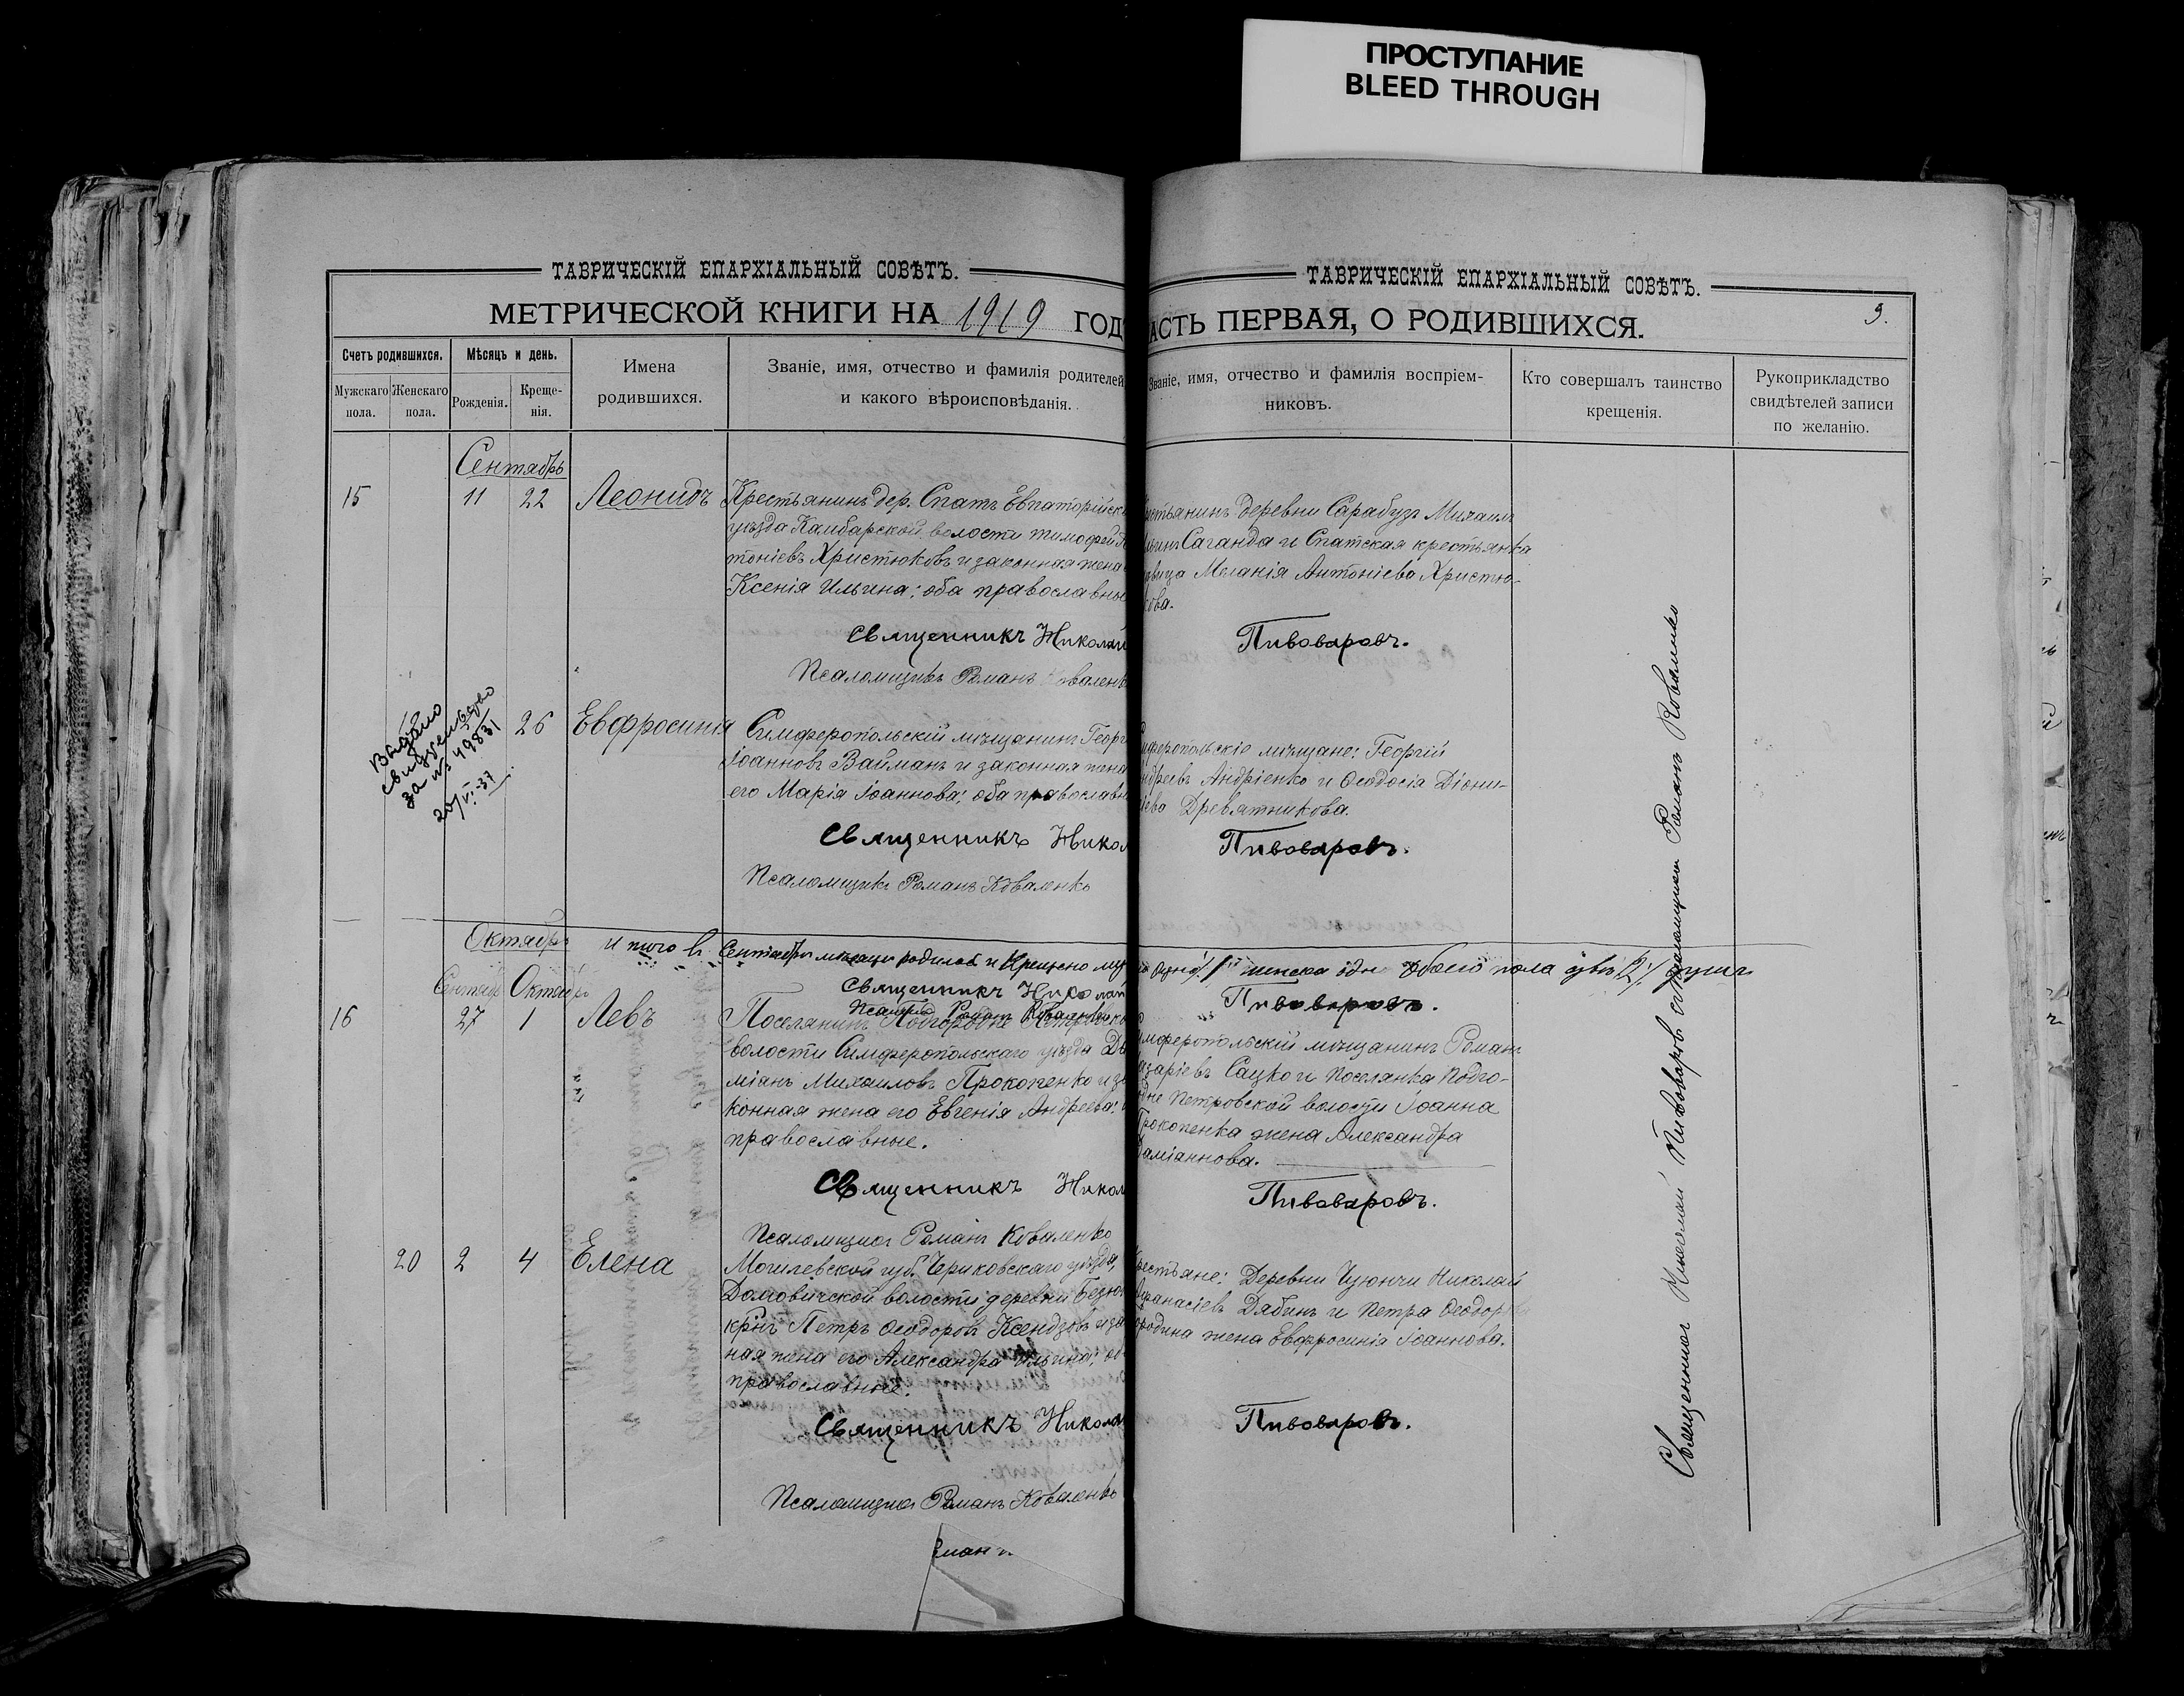 ПРОСТУПАНИЕ
BLEED THROUGH
ТАВРИЧЕСКІЙ ЕПАРХІАЛЬНЫЙ СОВѢТЪ.
МЕТРИЧЕСКОЙ КНИГИ НА 1919 ГОД
Счетъ родившихся.
Мѣсяцъ и день.
Мужскаго пола.
Женскаго пола.
Рожденія.
Креще-
нія.
Имена
родившихся.
Званіе, имя, отчество и фамилія родителей
и какого вѣроисповѣданія.
Сентябрь
15 11 22 Леонидъ
Крестьянинъ дер. Спатъ Евпаторійск
уѣзда Камбарской волости Тимофей
тоніевъ Христюковъ и законная жена
Ксенія Ильина; оба православные
Священникъ Николай
Псаломщикъ Романъ
Выдано
свидетельство
за № 49831
20/VI-37
26 Евфросинія
Симферопольскій мѣщанинъ Георг
Іоанновъ Вайманъ и законная жена
его Марія Іоаннова; оба православн
Священникъ Никол
Псаломщикъ Романъ Коваленко
Октябрь
Итого в Сентябрѣ мѣсяцѣ родилос и Крещено му
Священникъ Николай
Псаломщ Романъ Коваленко
Сентябр Октябрь
16 27 1 Левъ
Поселянинъ Подгородне Петровско
волости Симферопольскаго уѣзда Да
міанъ Михаиловъ Прокопенко и за
конная жена его Евгенія Андреева;
православные.
Священникъ Никол
Псаломщикъ Романъ Коваленко
20 2 4 Елена
Могилевской губ. Чериковскаго уѣзда,
волости деревни
кр-нъ Петръ Ѳеодоровъ Ксендзовъ и за
ная жена его Александра Ильина; об
православные.
Священникъ Никола
Псаломщикъ Романъ Коваленко
ТАВРИЧЕСКІЙ ЕПАРХІАЛЬНЫЙ СОВѢТЪ.
АСТЬ ПЕРВАЯ, О РОДИВШИХСЯ.
Званіе, имя, отчество и фамилія воспріем-
никовъ.
Кто совершалъ таинство
крещенія.
Рукоприкладство
свидѣтелей записи
по желанію.
стьянинъ деревни Сарабузъ Михаилъ
Саганда и Спатская крестьянка
вица Меланія Антоніева Христю-
кова.
Пивоваровъ.
феропольскіе мѣщане: Георгій
ндреевъ Андріенко и Ѳеодосія Діони-
іева Древятникова.
Пивоваровъ.
женска одн обоего пола двѣ /2/ душъ
Пивоваровъ.
мферопольскій мѣщанинъ Романъ
азаріевъ Сацко и поселянка Подго-
дне Петровской волости Іоанна
Прокопенка жена Александра
Даміаннова.
Пивоваровъ.
рестьяне: Деревни Чуюнчи Николай
фанасіевъ Дябинъ и Петра Ѳеодор
родина жена Евфросинія Іоаннова.
Пивоваровъ.
Священникъ Николай Пивоваровъ съ псаломщикомъ Романъ Коваленко